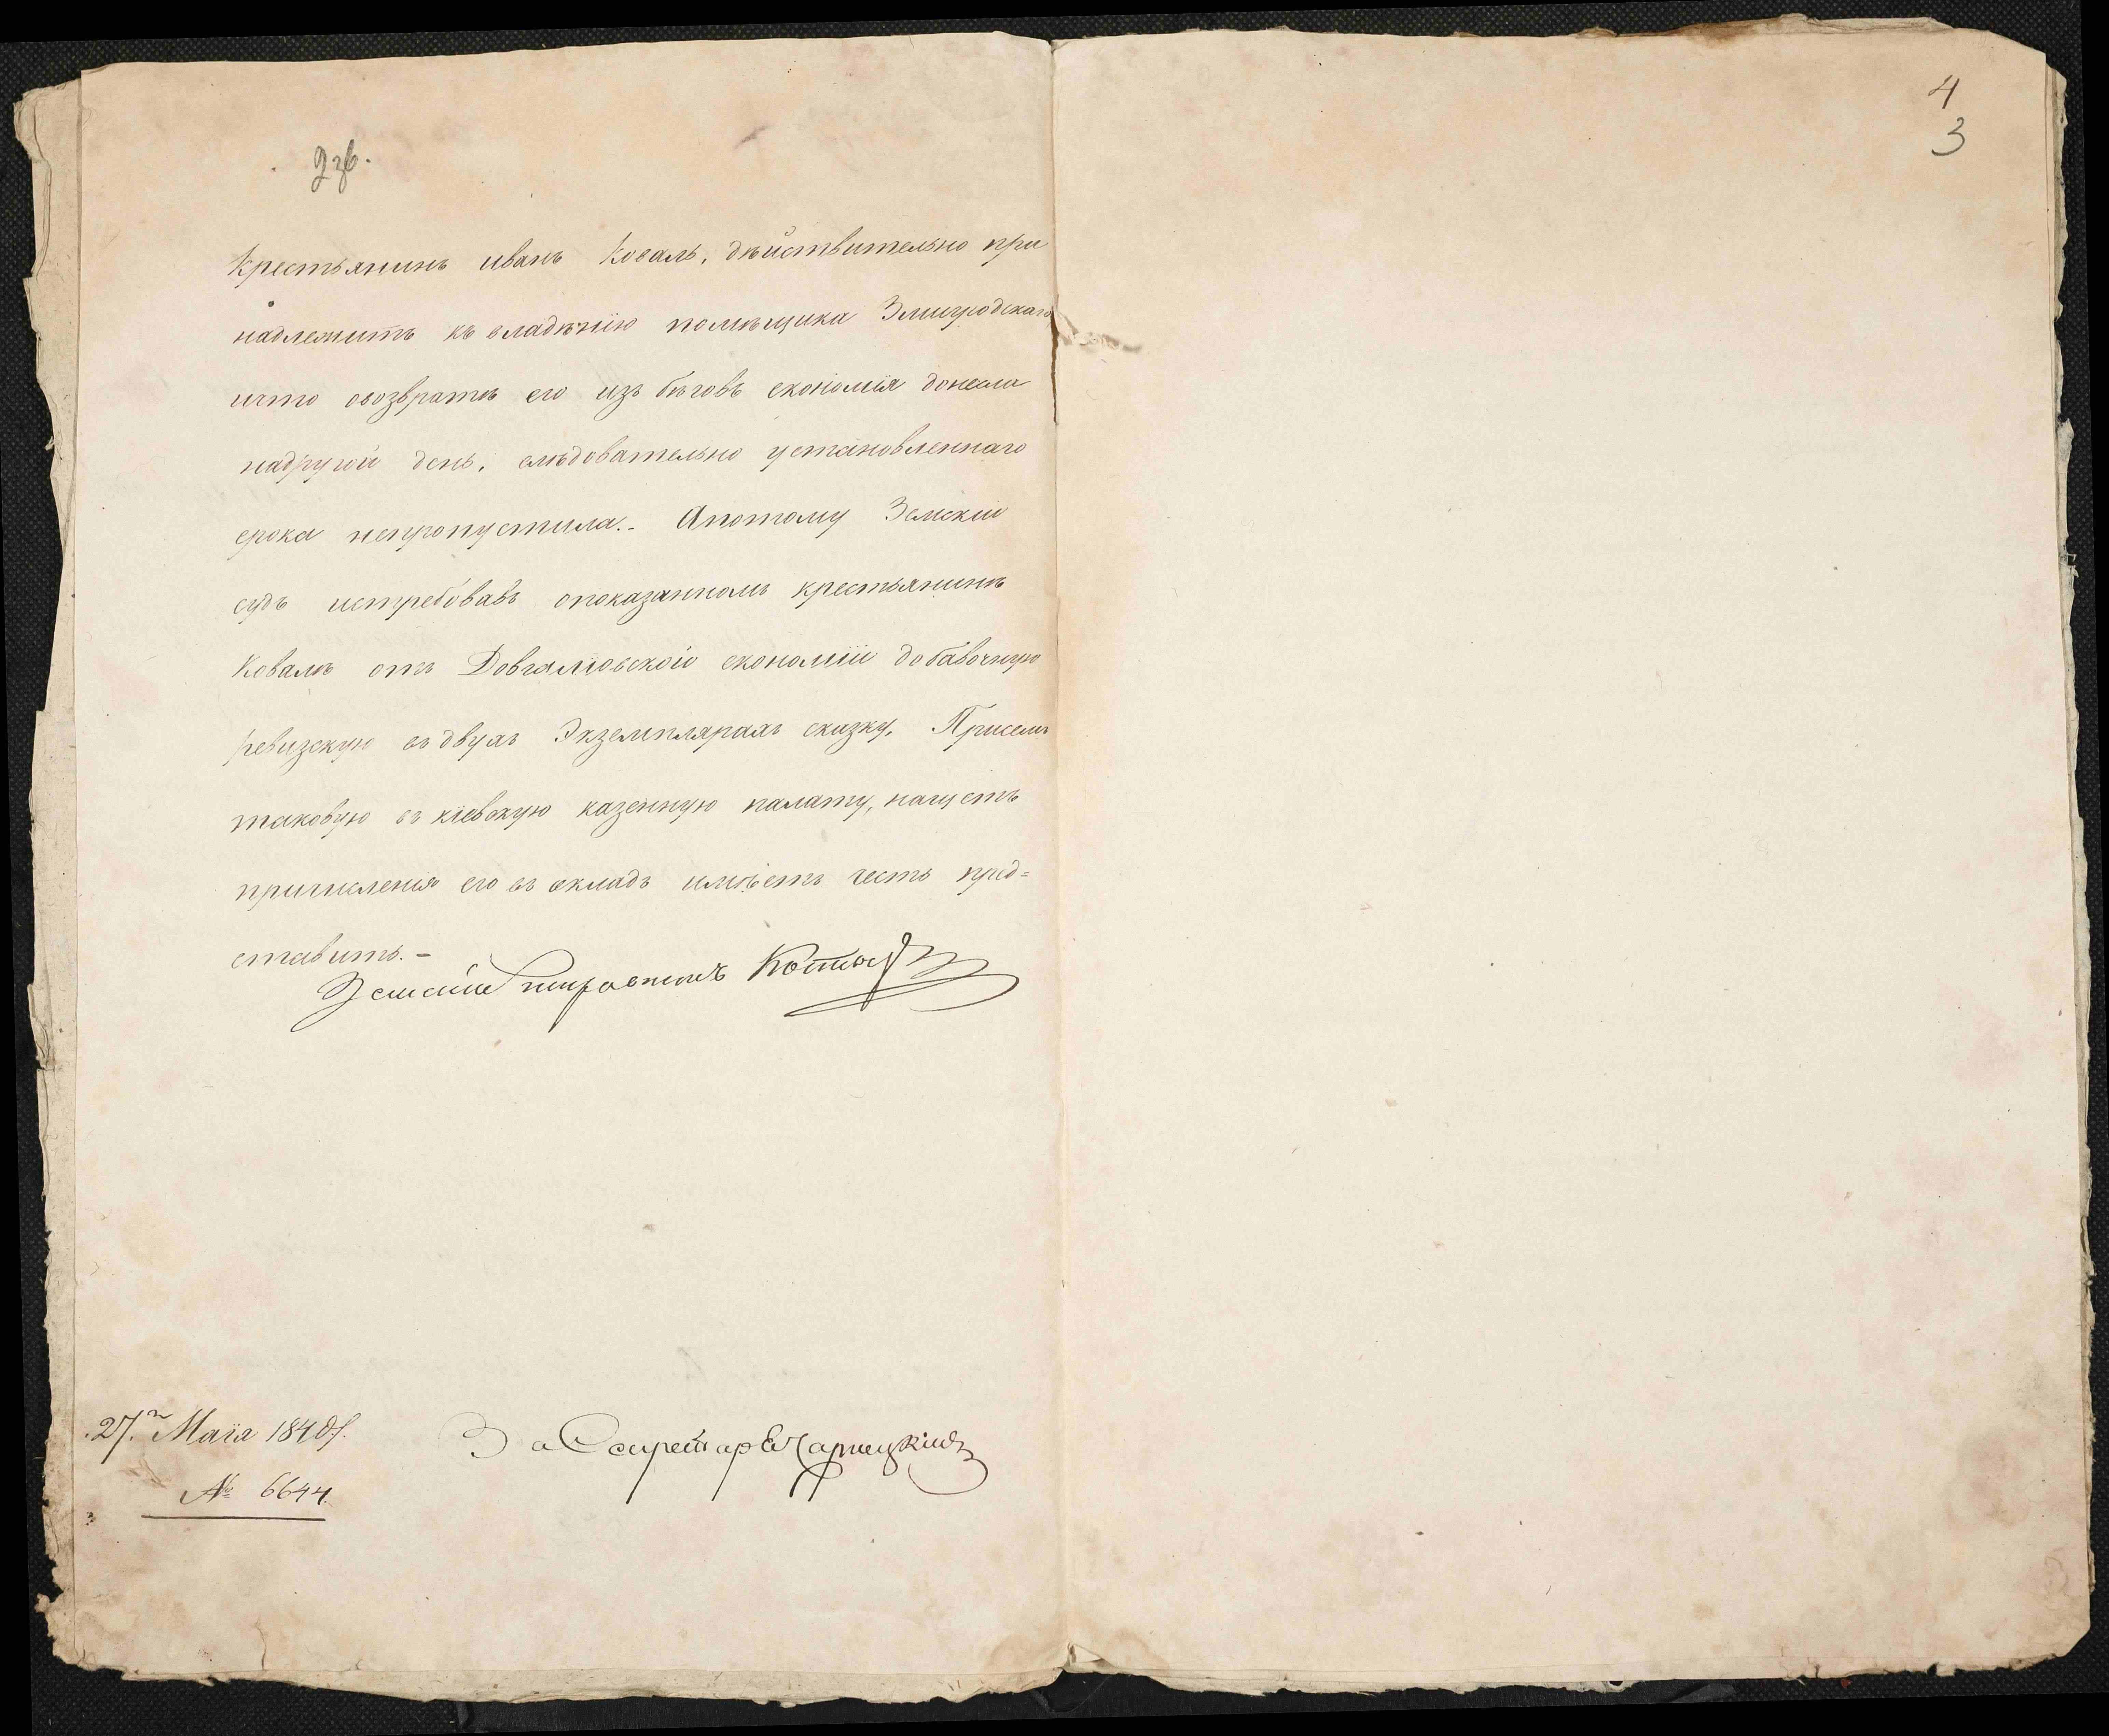 2зв.
Крестьянинъ иванъ Коваль, дѣйствительно при
надлежитъ къ владѣнїю помѣщика Злигродскаго
ичто овозвратѣ его изъ бѣговъ економїя донесла
надругой день, слѣдовательно установленнаго
срока непропустила.- Апотому Земскій
судъ истребовавъ опоказанномъ крестьянинѣ
Ковалѣ отъ Довгалювской економїи добавочную
ревизскую въ двухъ Экземплярахъ сказку, Присемъ
таковую въ кїевскую казенную палату, насчетъ
причисленїя его въ окладъ имѣетъ честь пред=
ставить.-
Земскій исправникъ
27.го Маїя 184
№ 6644.
За Секретаря
4
3